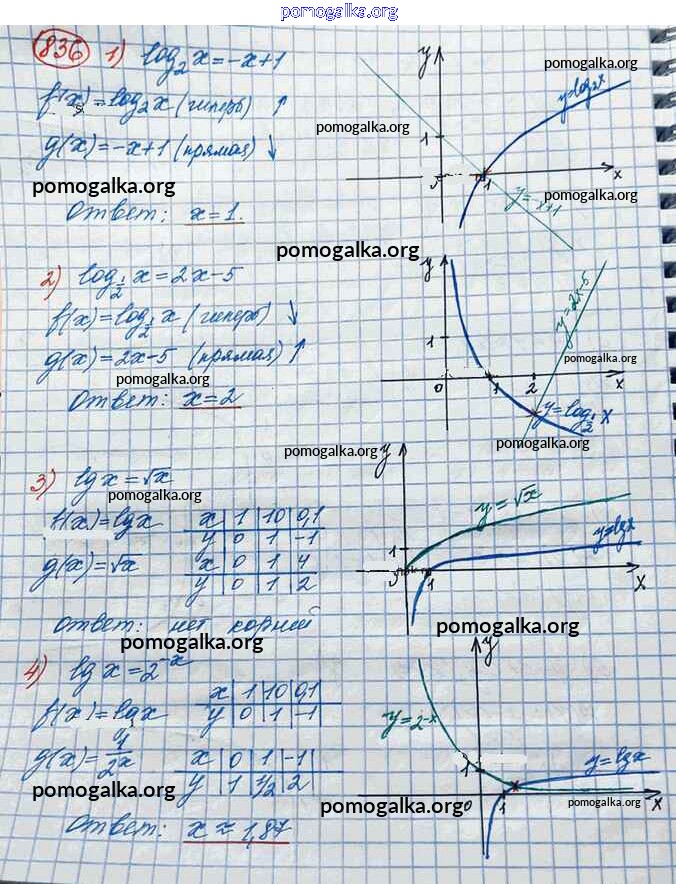 pomogalka.org
836 1) log₂x = -x+1
f(x) = log₂x (гиперб) ↑
g(x) = -x+1 (прямая) ↓
pomogalka.org
Ответ: x=1.
y
1
0
1
x
y=log₂x
y=-x+1
pomogalka.org
pomogalka.org
pomogalka.org
pomogalka.org
2) log_{1/2} x = 2x-5
f(x) = log_{1/2} x (гиперб) ↓
g(x) = 2x-5 (прямая) ↑
pomogalka.org
Ответ: x=2
y
1
0
1
2
x
y=2x-5
pomogalka.org
y=log_{1/2} x
pomogalka.org
pomogalka.org
3) lg x = √x
pomogalka.org
f(x) = lgx
x 1 10 0,1
y 0 1 -1
g(x) = √x
x 0 1 4
y 0 1 2
Ответ: нет корней
pomogalka.org
y
1
1
x
y=√x
y=lgx
pomogalka.org
4) lg x = 2^{-x}
f(x) = lgx
x 1 10 0,1
y 0 1 -1
g(x) = 1/2^x
x 0 1 -1
y 1 1/2 2
pomogalka.org
Ответ: x ≈ 1,87
y
y=2^{-x}
1
y=lgx
pomogalka.org
0
1
x
pomogalka.org